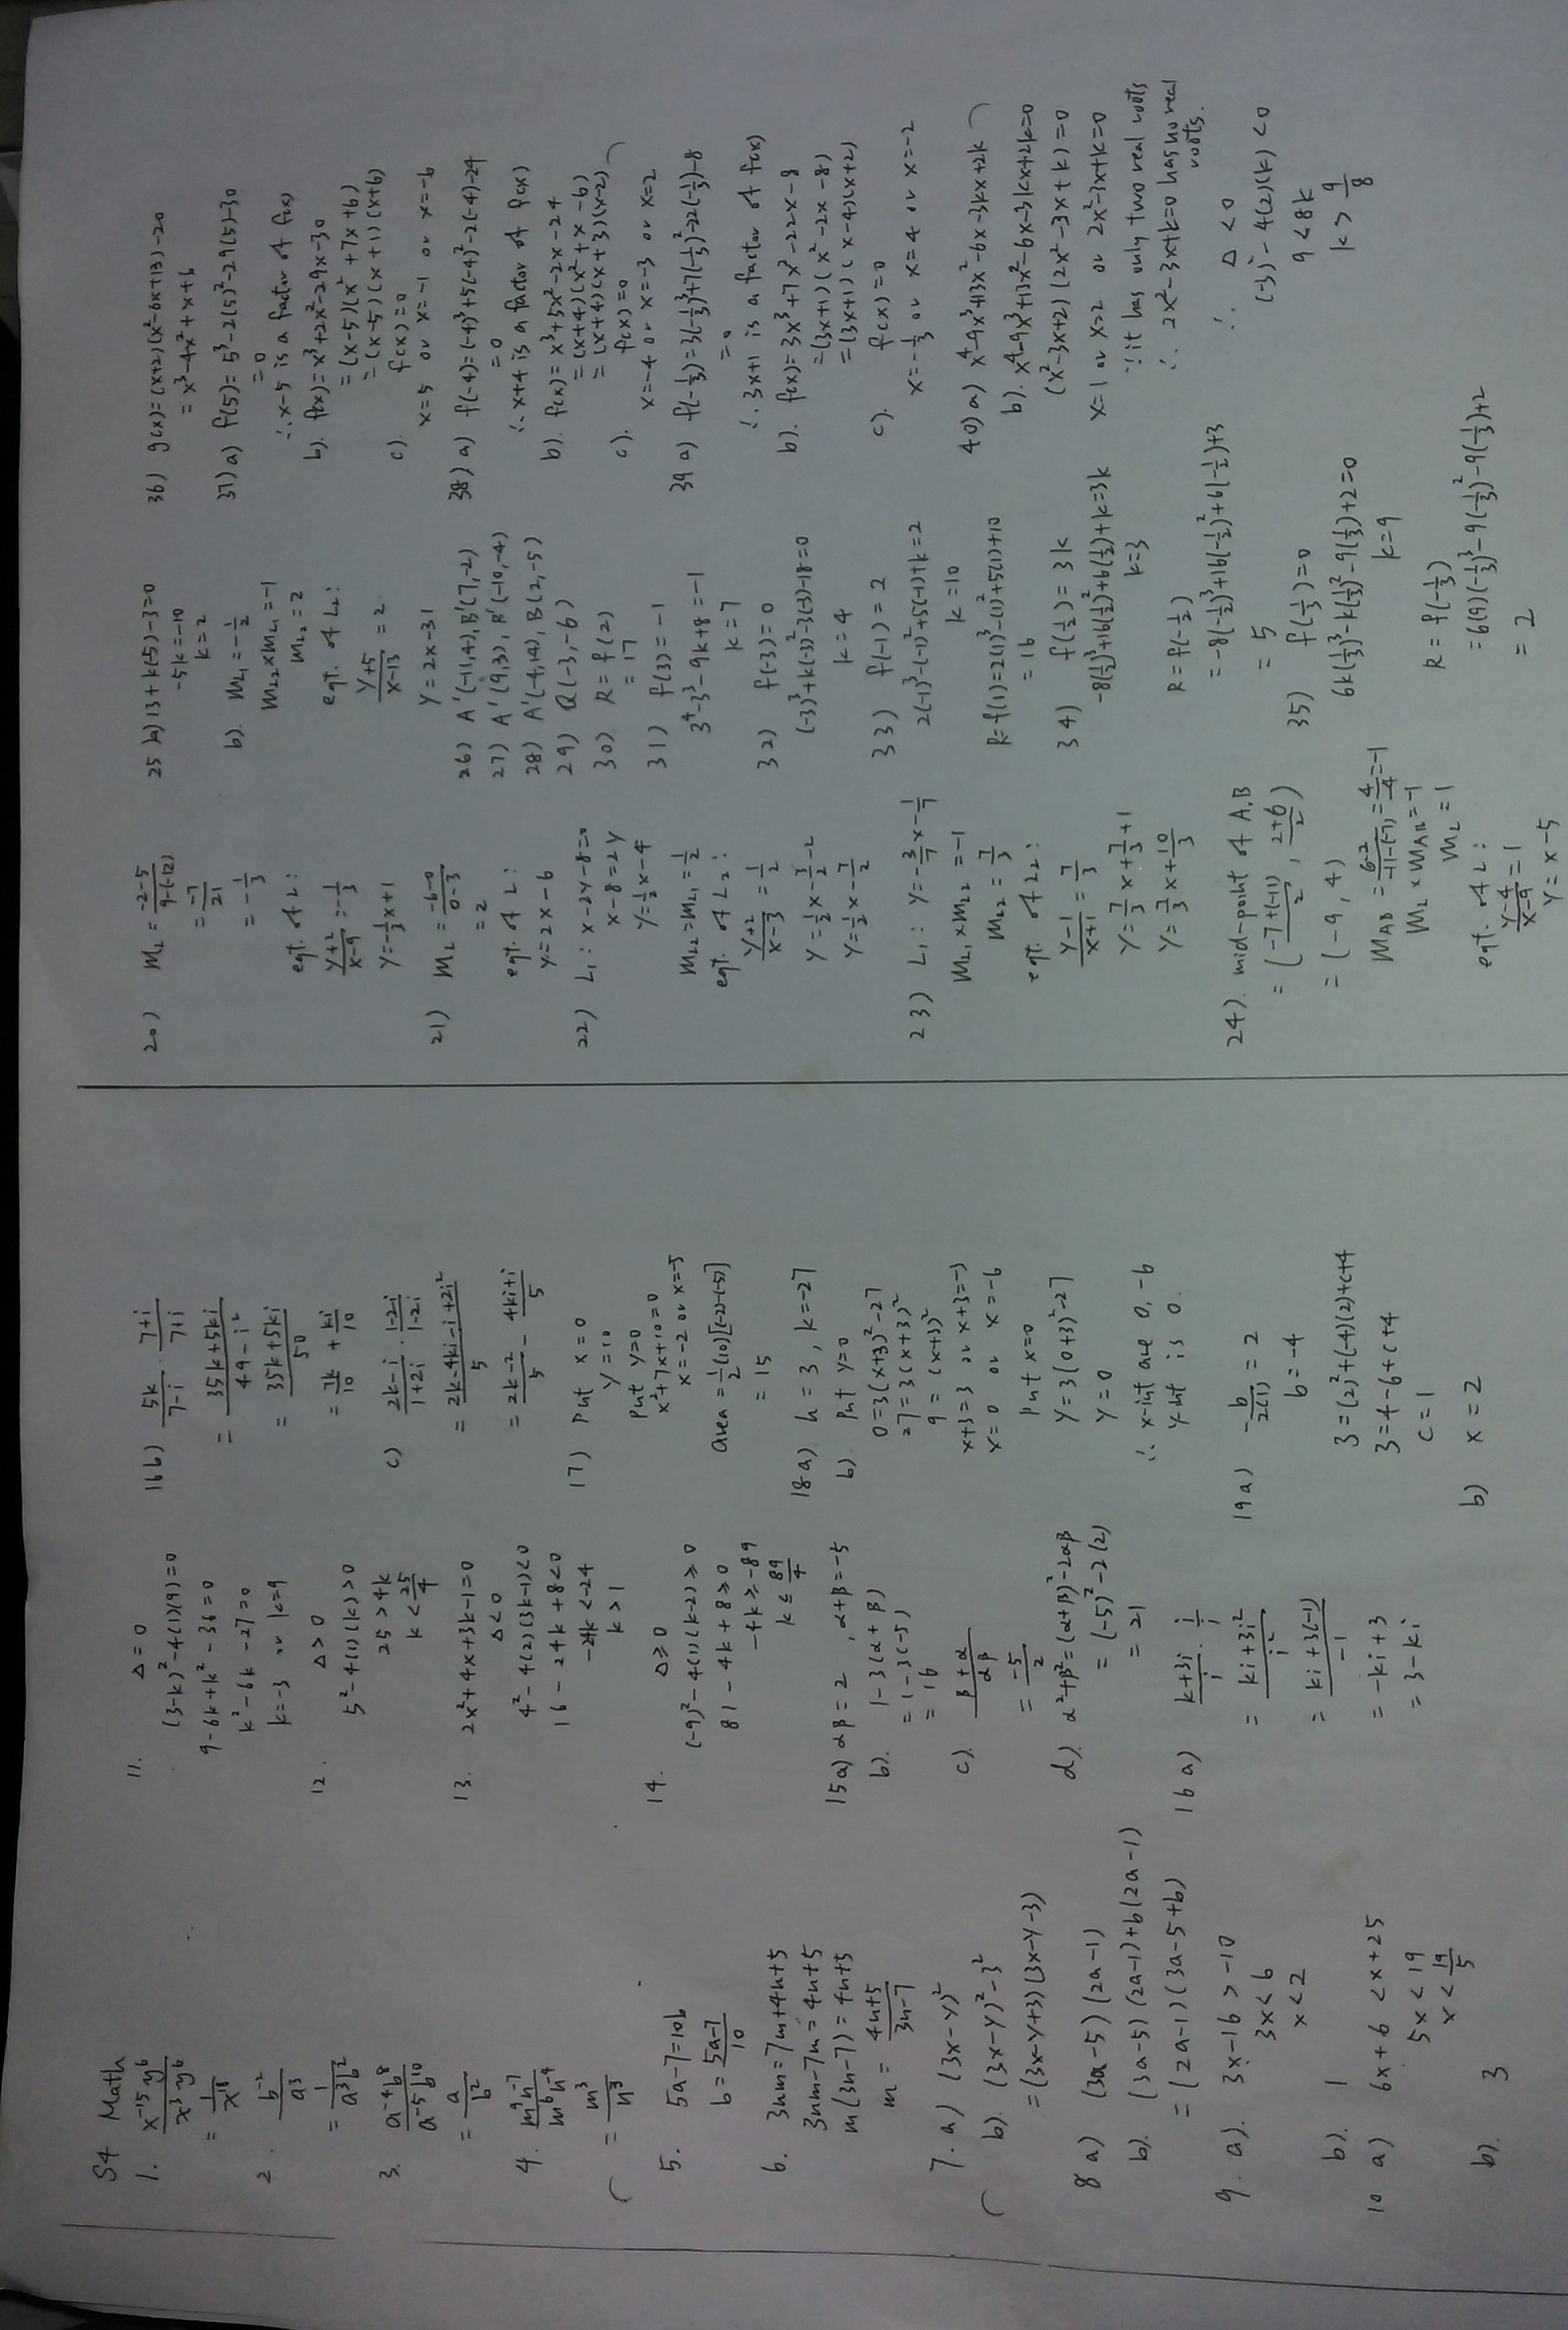 S4 Math
1. \frac{x^{-15}y^6}{x^3y^6}
= \frac{1}{x^{18}}
2. \frac{b^{-2}}{a^3}
= \frac{1}{a^3b^2}
3. \frac{a^{-4}b^8}{a^{-5}b^{10}}
= \frac{a}{b^2}
4. \frac{m^9n^{-7}}{m^6n^{-4}}
= \frac{m^3}{n^3}
5. 5a-7=10b
b=\frac{5a-7}{10}
6. 3nm=7m+4n+5
3nm-7m=4n+5
m(3n-7)=4n+5
m=\frac{4n+5}{3n-7}
7. a) (3x-y)^2
b). (3x-y)^2-3^2
=(3x-y+3)(3x-y-3)
8 a) (3a-5)(2a-1)
b). (3a-5)(2a-1)+b(2a-1)
=(2a-1)(3a-5+b)
9. a). 3x-16>-10
3x<6
x<2
b). 1
10 a) 6x+6<x+25
5x<19
x<\frac{19}{5}
b). 3
11. Δ=0
(3-k)^2-4(1)(9)=0
9-6k+k^2-36=0
k^2-6k-27=0
k=-3 or k=9
12. Δ>0
5^2-4(1)(k)>0
25>4k
k<\frac{25}{4}
13. 2x^2+4x+3k-1=0
Δ<0
4^2-4(2)(3k-1)<0
16-24k+8<0
-24k<-24
k>1
14. Δ≥0
(-9)^2-4(1)(k-2)≥0
81-4k+8≥0
-4k≥-89
k≤\frac{89}{4}
15a) αβ=2, α+β=-5
b). 1-3(α+β)
=1-3(-5)
=16
c). \frac{β+α}{αβ}
=\frac{-5}{2}
d). α^2+β^2=(α+β)^2-2αβ
=(-5)^2-2(2)
=21
16 a) \frac{k+3i}{i}·\frac{i}{i}
=\frac{ki+3i^2}{i^2}
=\frac{ki+3(-1)}{-1}
=-ki+3
=3-ki
16b) \frac{5k}{7-i}·\frac{7+i}{7+i}
=\frac{35k+5ki}{49-i^2}
=\frac{35k+5ki}{50}
=\frac{7k}{10}+\frac{ki}{10}
c) \frac{2k-i}{1+2i}·\frac{1-2i}{1-2i}
=\frac{2k-4ki-i+2i^2}{5}
=\frac{2k-2}{5}-\frac{4ki+i}{5}
17) Put x=0
y=10
Put y=0
x^2+7x+10=0
x=-2 or x=-5
Area=\frac{1}{2}(10)[(-2)-(-5)]
=15
18 a). h=3, k=-27
b). Put y=0
0=3(x+3)^2-27
27=3(x+3)^2
9=(x+3)^2
x+3=3 or x+3=-3
x=0 or x=-6
Put x=0
y=3(0+3)^2-27
y=0
∴ x-int are 0, -6
y-int is 0.
19 a) -\frac{b}{2(1)}=2
b=-4
3=(2)^2+(-4)(2)+c+4
3=4-6+c+4
c=1
b) x=2
20) m_L=\frac{-2-5}{9-(-12)}
=\frac{-7}{21}
=-\frac{1}{3}
eqt. of L:
\frac{y+2}{x-9}=-\frac{1}{3}
y=-\frac{1}{3}x+1
21) m_L=\frac{-6-0}{0-3}
=2
eqt of L:
y=2x-6
22) L_1: x-2y-8=0
x-8=2y
y=\frac{1}{2}x-4
m_{L2}=m_{L1}=\frac{1}{2}
eqt. of L_2:
\frac{y+2}{x-3}=\frac{1}{2}
y=\frac{1}{2}x-\frac{3}{2}-2
y=\frac{1}{2}x-\frac{7}{2}
23) L_1: y=-\frac{3}{7}x-\frac{1}{7}
m_{L1}×m_{L2}=-1
m_{L2}=\frac{7}{3}
eqt. of L2:
\frac{y-1}{x+1}=\frac{7}{3}
y=\frac{7}{3}x+\frac{7}{3}+1
y=\frac{7}{3}x+\frac{10}{3}
24). mid-point of A,B
=(\frac{-7+(-11)}{2}, \frac{2+6}{2})
=(-9, 4)
m_{AB}=\frac{6-2}{-11-(-7)}=\frac{4}{-4}=-1
m_L×m_{AB}=-1
m_L=1
eqt. of L:
\frac{y-4}{x-9}=1
y=x-5
25 a) 13+k(5)-3=0
-5k=-10
k=2
b). m_{L1}=-\frac{1}{2}
m_{L2}×m_{L1}=-1
m_{L2}=2
eqt. of L_2:
\frac{y+5}{x-13}=2
y=2x-31
26) A'(-11,4), B'(7,-2)
27) A'(9,3), B'(-10,-4)
28) A'(-4,14), B(2,-5)
29) Q(-3,-6)
30) R=f(2)
=17
31) f(3)=-1
3^4-3^3-9k+8=-1
k=7
32) f(-3)=0
(-3)^3+k(-3)^2-3(-3)-18=0
k=4
33) f(-1)=2
2(-1)^3-(-1)^2+5(-1)+k=2
k=10
R=f(1)=2(1)^3-(1)^2+5(1)+10
=16
34) f(\frac{1}{2})=3k
-8(\frac{1}{2})^3+16(\frac{1}{2})^2+6(\frac{1}{2})+k=3k
k=3
R=f(-\frac{1}{2})
=-8(-\frac{1}{2})^3+16(-\frac{1}{2})^2+6(-\frac{1}{2})+3
=5
35) f(\frac{1}{3})=0
6k(\frac{1}{3})^3-k(\frac{1}{3})^2-9(\frac{1}{3})+2=0
k=9
R=f(-\frac{1}{3})
=6(9)(-\frac{1}{3})^3-9(-\frac{1}{3})^2-9(-\frac{1}{3})+2
=2
36) g(x)=(x+2)(x^2-6x+13)-20
=x^3-4x^2+x+6
37) a) f(5)=5^3-2(5)^2-29(5)-30
=0
∴ x-5 is a factor of f(x)
b). f(x)=x^3+2x^2-29x-30
=(x-5)(x^2+7x+6)
=(x-5)(x+1)(x+6)
c). f(x)=0
x=5 or x=-1 or x=-6
38) a) f(-4)=(-4)^3+5(-4)^2-2(-4)-24
=0
∴ x+4 is a factor of f(x)
b). f(x)=x^3+5x^2-2x-24
=(x+4)(x^2+x-6)
=(x+4)(x+3)(x-2)
c). f(x)=0
x=-4 or x=-3 or x=2
39 a) f(-\frac{1}{3})=3(-\frac{1}{3})^3+7(-\frac{1}{3})^2-22(-\frac{1}{3})-8
=0
∴ 3x+1 is a factor of f(x)
b). f(x)=3x^3+7x^2-22x-8
=(3x+1)(x^2-2x-8)
=(3x+1)(x-4)(x+2)
c). f(x)=0
x=-\frac{1}{3} or x=4 or x=-2
40) a) x^4-9x^3+13x^2-6x-3kx+2k
b). x^4-9x^3+13x^2-6x-3kx+2k=0
(x^2-3x+2)(2x^2-3x+k)=0
x=1 or x=2 or 2x^2-3x+k=0
∵ it has only two real roots
∴ 2x^2-3x+k=0 has no real
roots.
∴ Δ<0
(-3)^2-4(2)(k)<0
9<8k
k>\frac{9}{8}